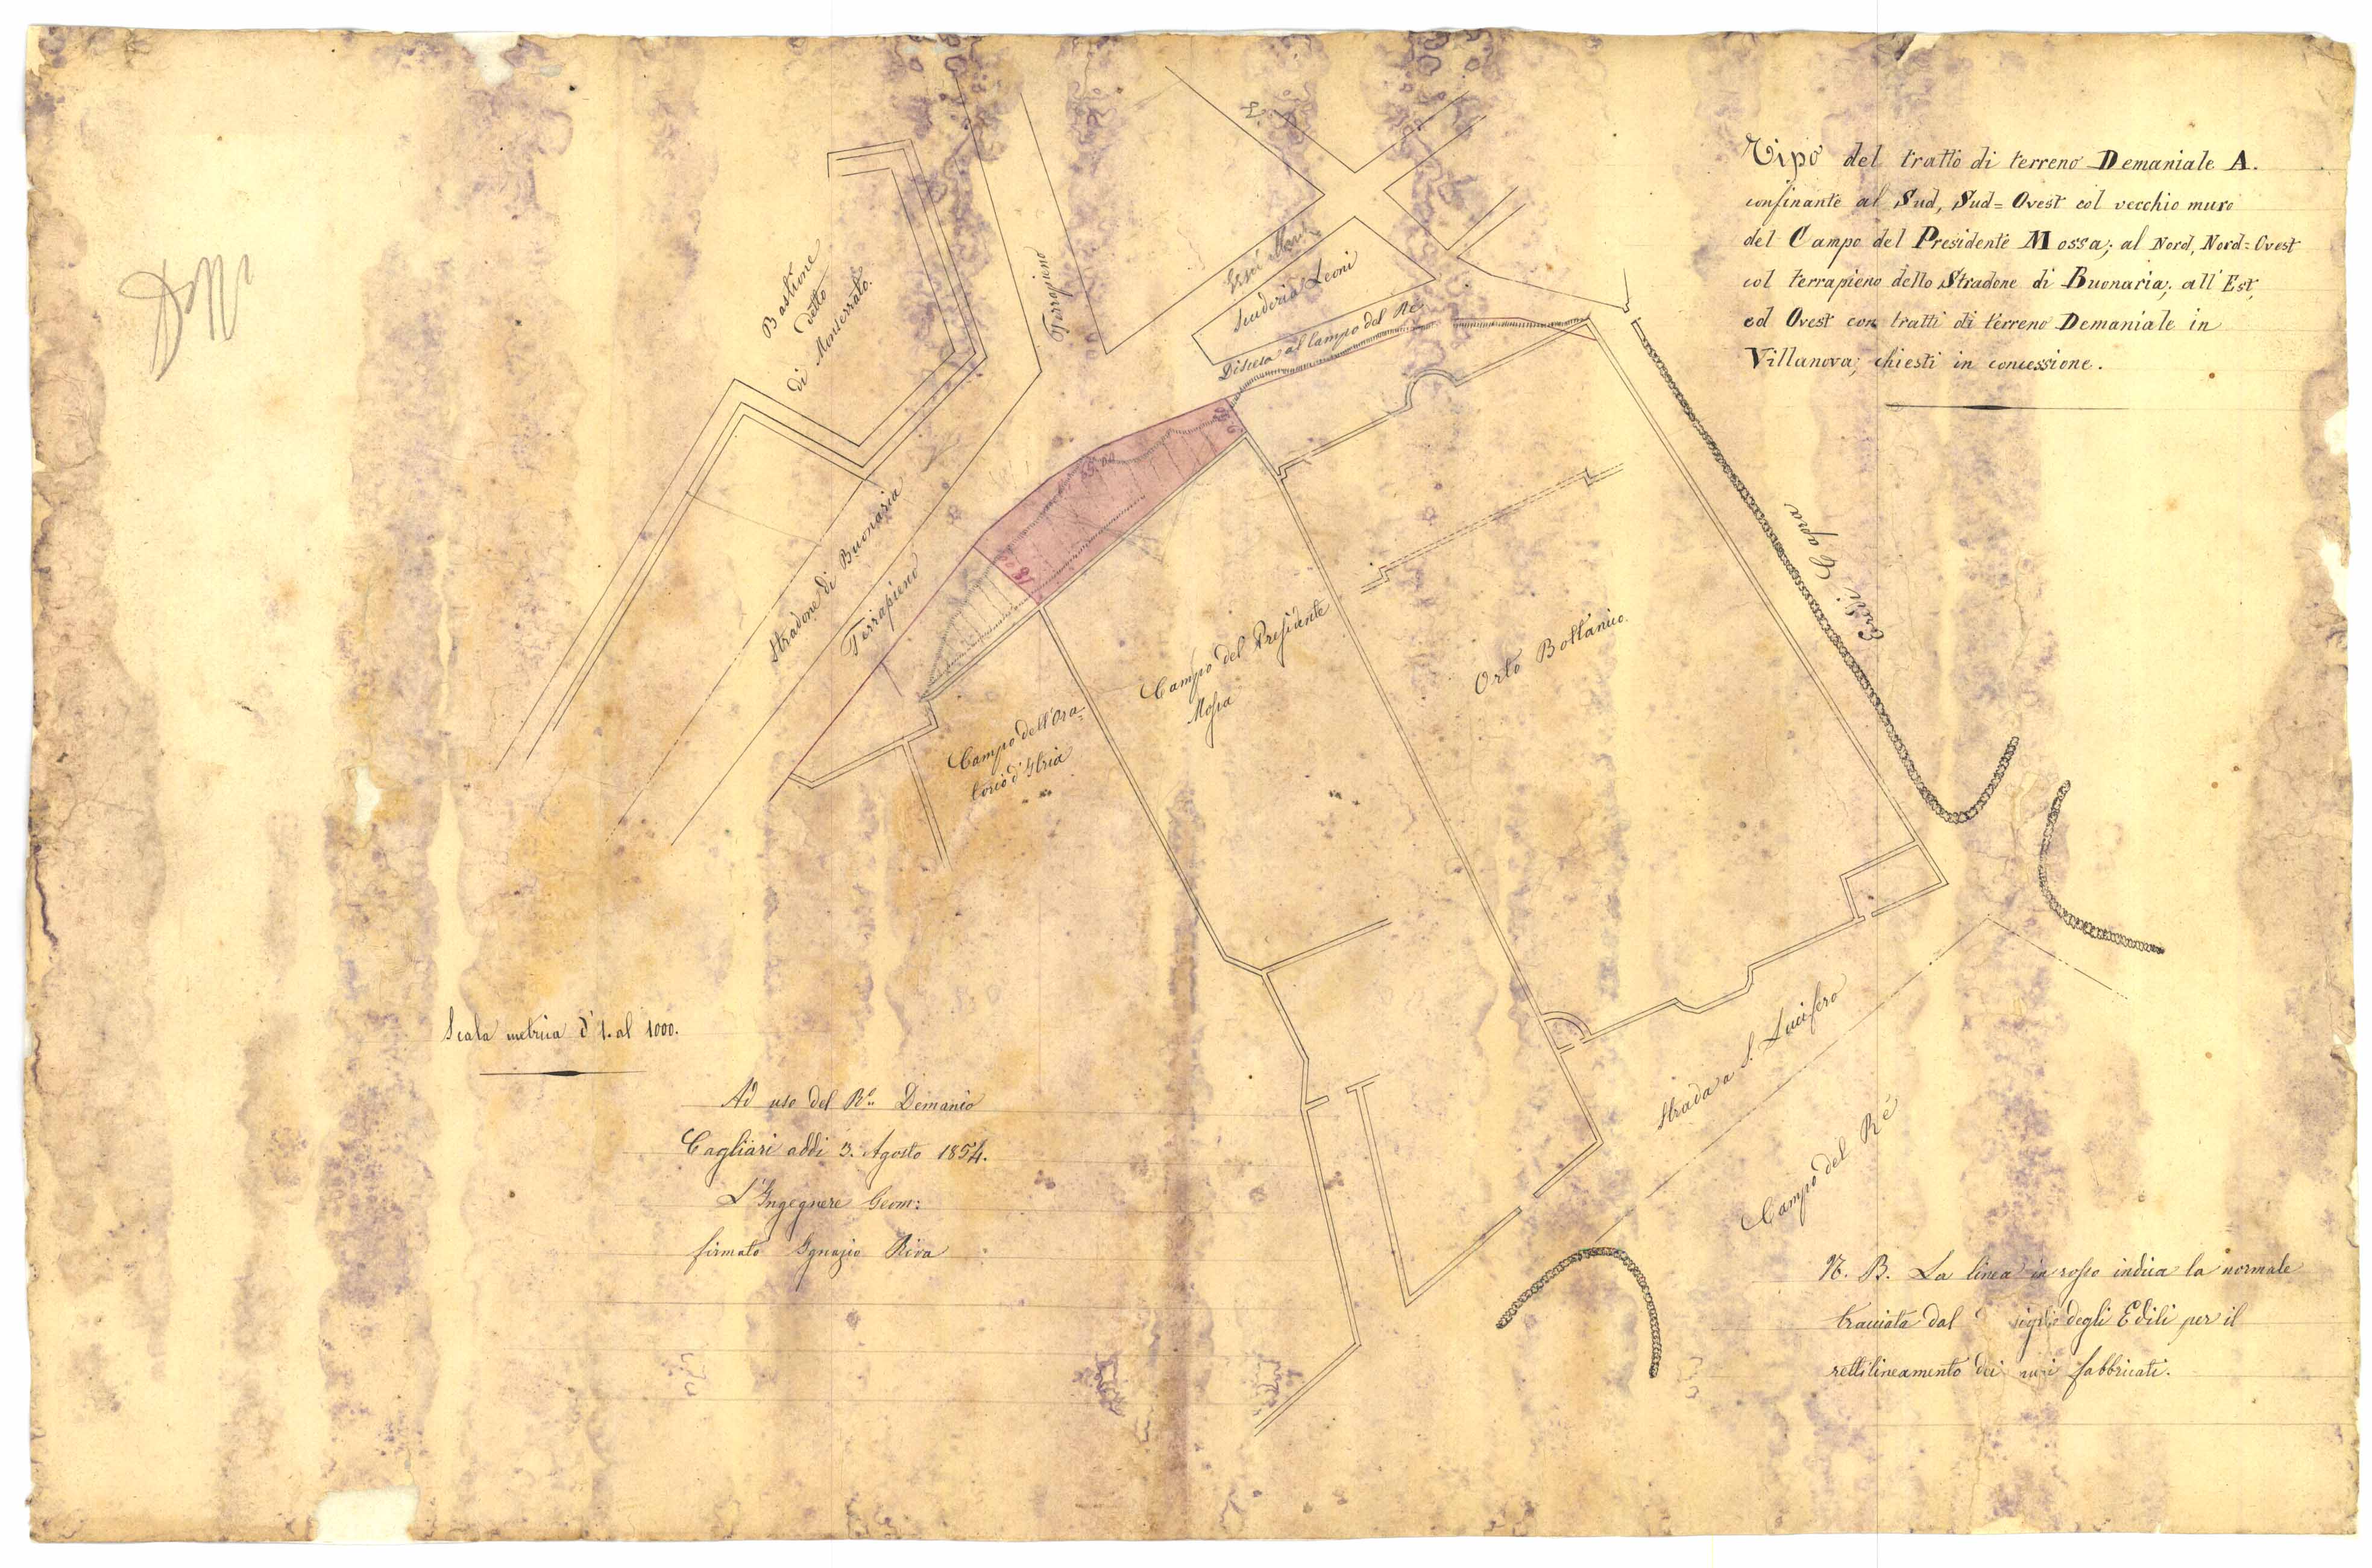 Tipo del tratto di terreno Demaniale A.
confinante al Sud, Sud=Ovest col vecchio muro
del Campo del Presidente Mossa; al Nord, Nord=Ovest
col terrapieno dello Stradone di Buonaria; all'Est,
ed Ovest con tratti di terreno Demaniale in
Villanova; chiesti in concessione.
Bastione
detto
di Monserrato.
Terrapieno
Scuderia Leoni
Discesa al Campo del Re
Stradone di Buonaria
Terrapieno
Campo dell'Ora=
torio d'Itria
Campo del Presidente
Mossa
Orto Bottanico.
Eredi Capra
Strada a S. Lucifero
Campo del Ré
Scala metrica d'1. al 1000.
Ad uso del R.º Demanio
Cagliari addi 3. Agosto 1854.
L'Ingegnere Geom:
firmato Ignazio Riva
N. B. La linea in rosso indica la normale
tracciata dal siglio degli Edili per il
rettilineamento dei fabbricati.